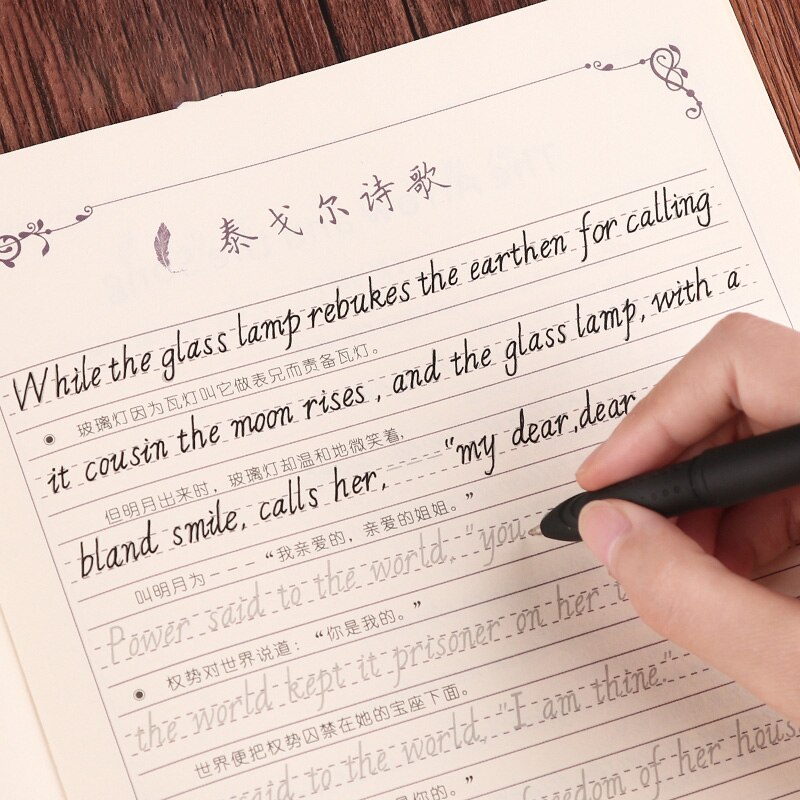 泰戈尔诗歌
While the glass lamp rebukes the earthen for calling
玻璃灯因为瓦灯叫它做表兄而责备瓦灯。
it cousin the moon rises, and the glass lamp, with a
但明月出来时，玻璃灯却温和地微笑着，
bland smile, calls her, ---- "my dear, dear
叫明月为---“我亲爱的，亲爱的姐姐。”
Power said to the world, "you
权势对世界说道：“你是我的。”
the world kept it prisoner on her
世界便把权势囚禁在她的宝座下面。
said to the world, "I am thine."
是你的。”
of her